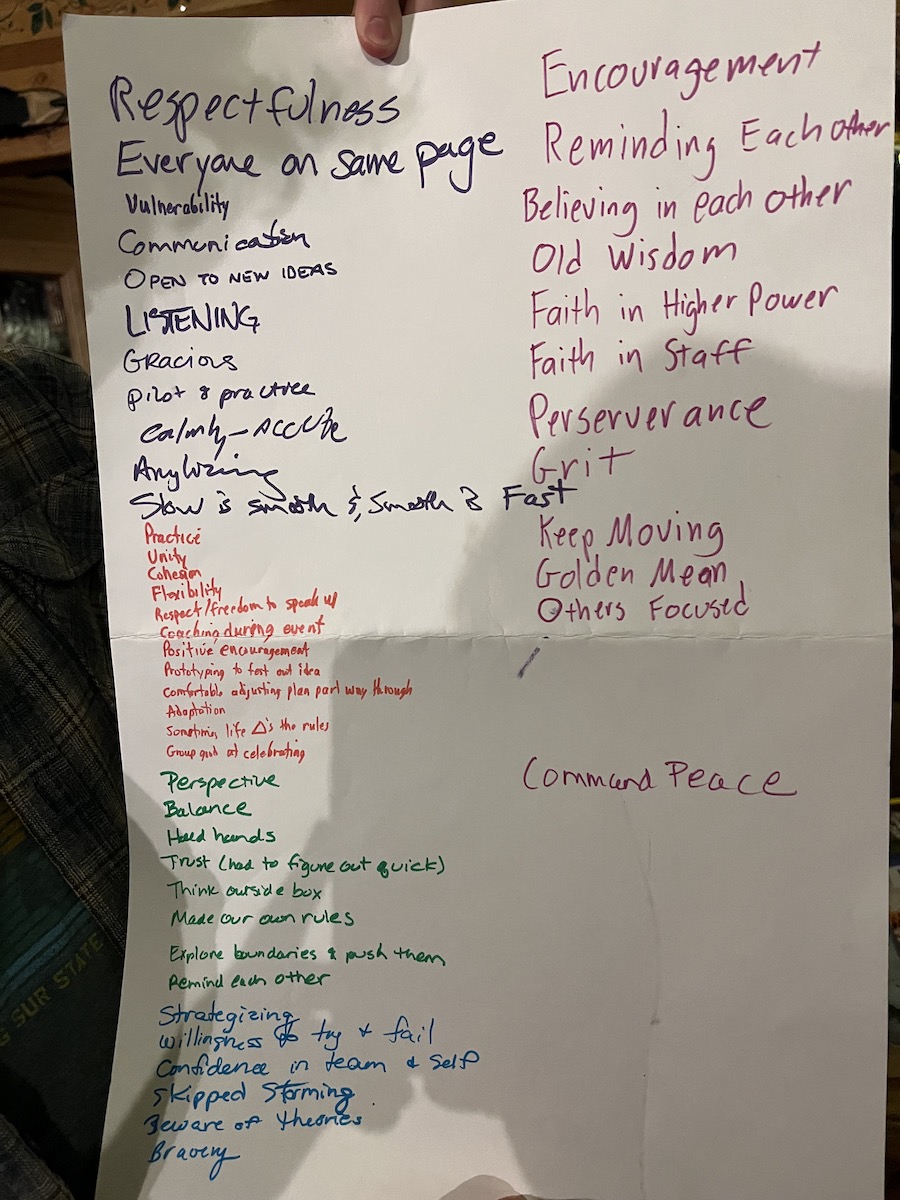 Respectfulness
Everyone on same page
Vulnerability
Communication
OPEN TO NEW IDEAS
LISTENING
Gracious
Pilot & practice
Calmly - 
Slow is smooth & smooth is Fast
Practice
Unity
Cohesion
Flexibility
Respect/freedom to speak up
Coaching during event
Positive encouragement
Prototyping to test out idea
Comfortable adjusting plan part way through
Adaptation
Sometimes life Δ's the rules
Group good at celebrating
Perspective
Balance
Hold hands
Trust (had to figure out quick)
Think outside box
Made our own rules
Explore boundaries & push them
Remind each other
Strategizing
Willingness to try + fail
Confidence in team & self
Skipped Storming
Beware of theories
Bravery
Encouragement
Reminding Each other
Believing in each other
Old Wisdom
Faith in Higher Power
Faith in Staff
Perserverance
Grit
Keep Moving
Golden Mean
Others Focused
Command Peace
SUR STATE